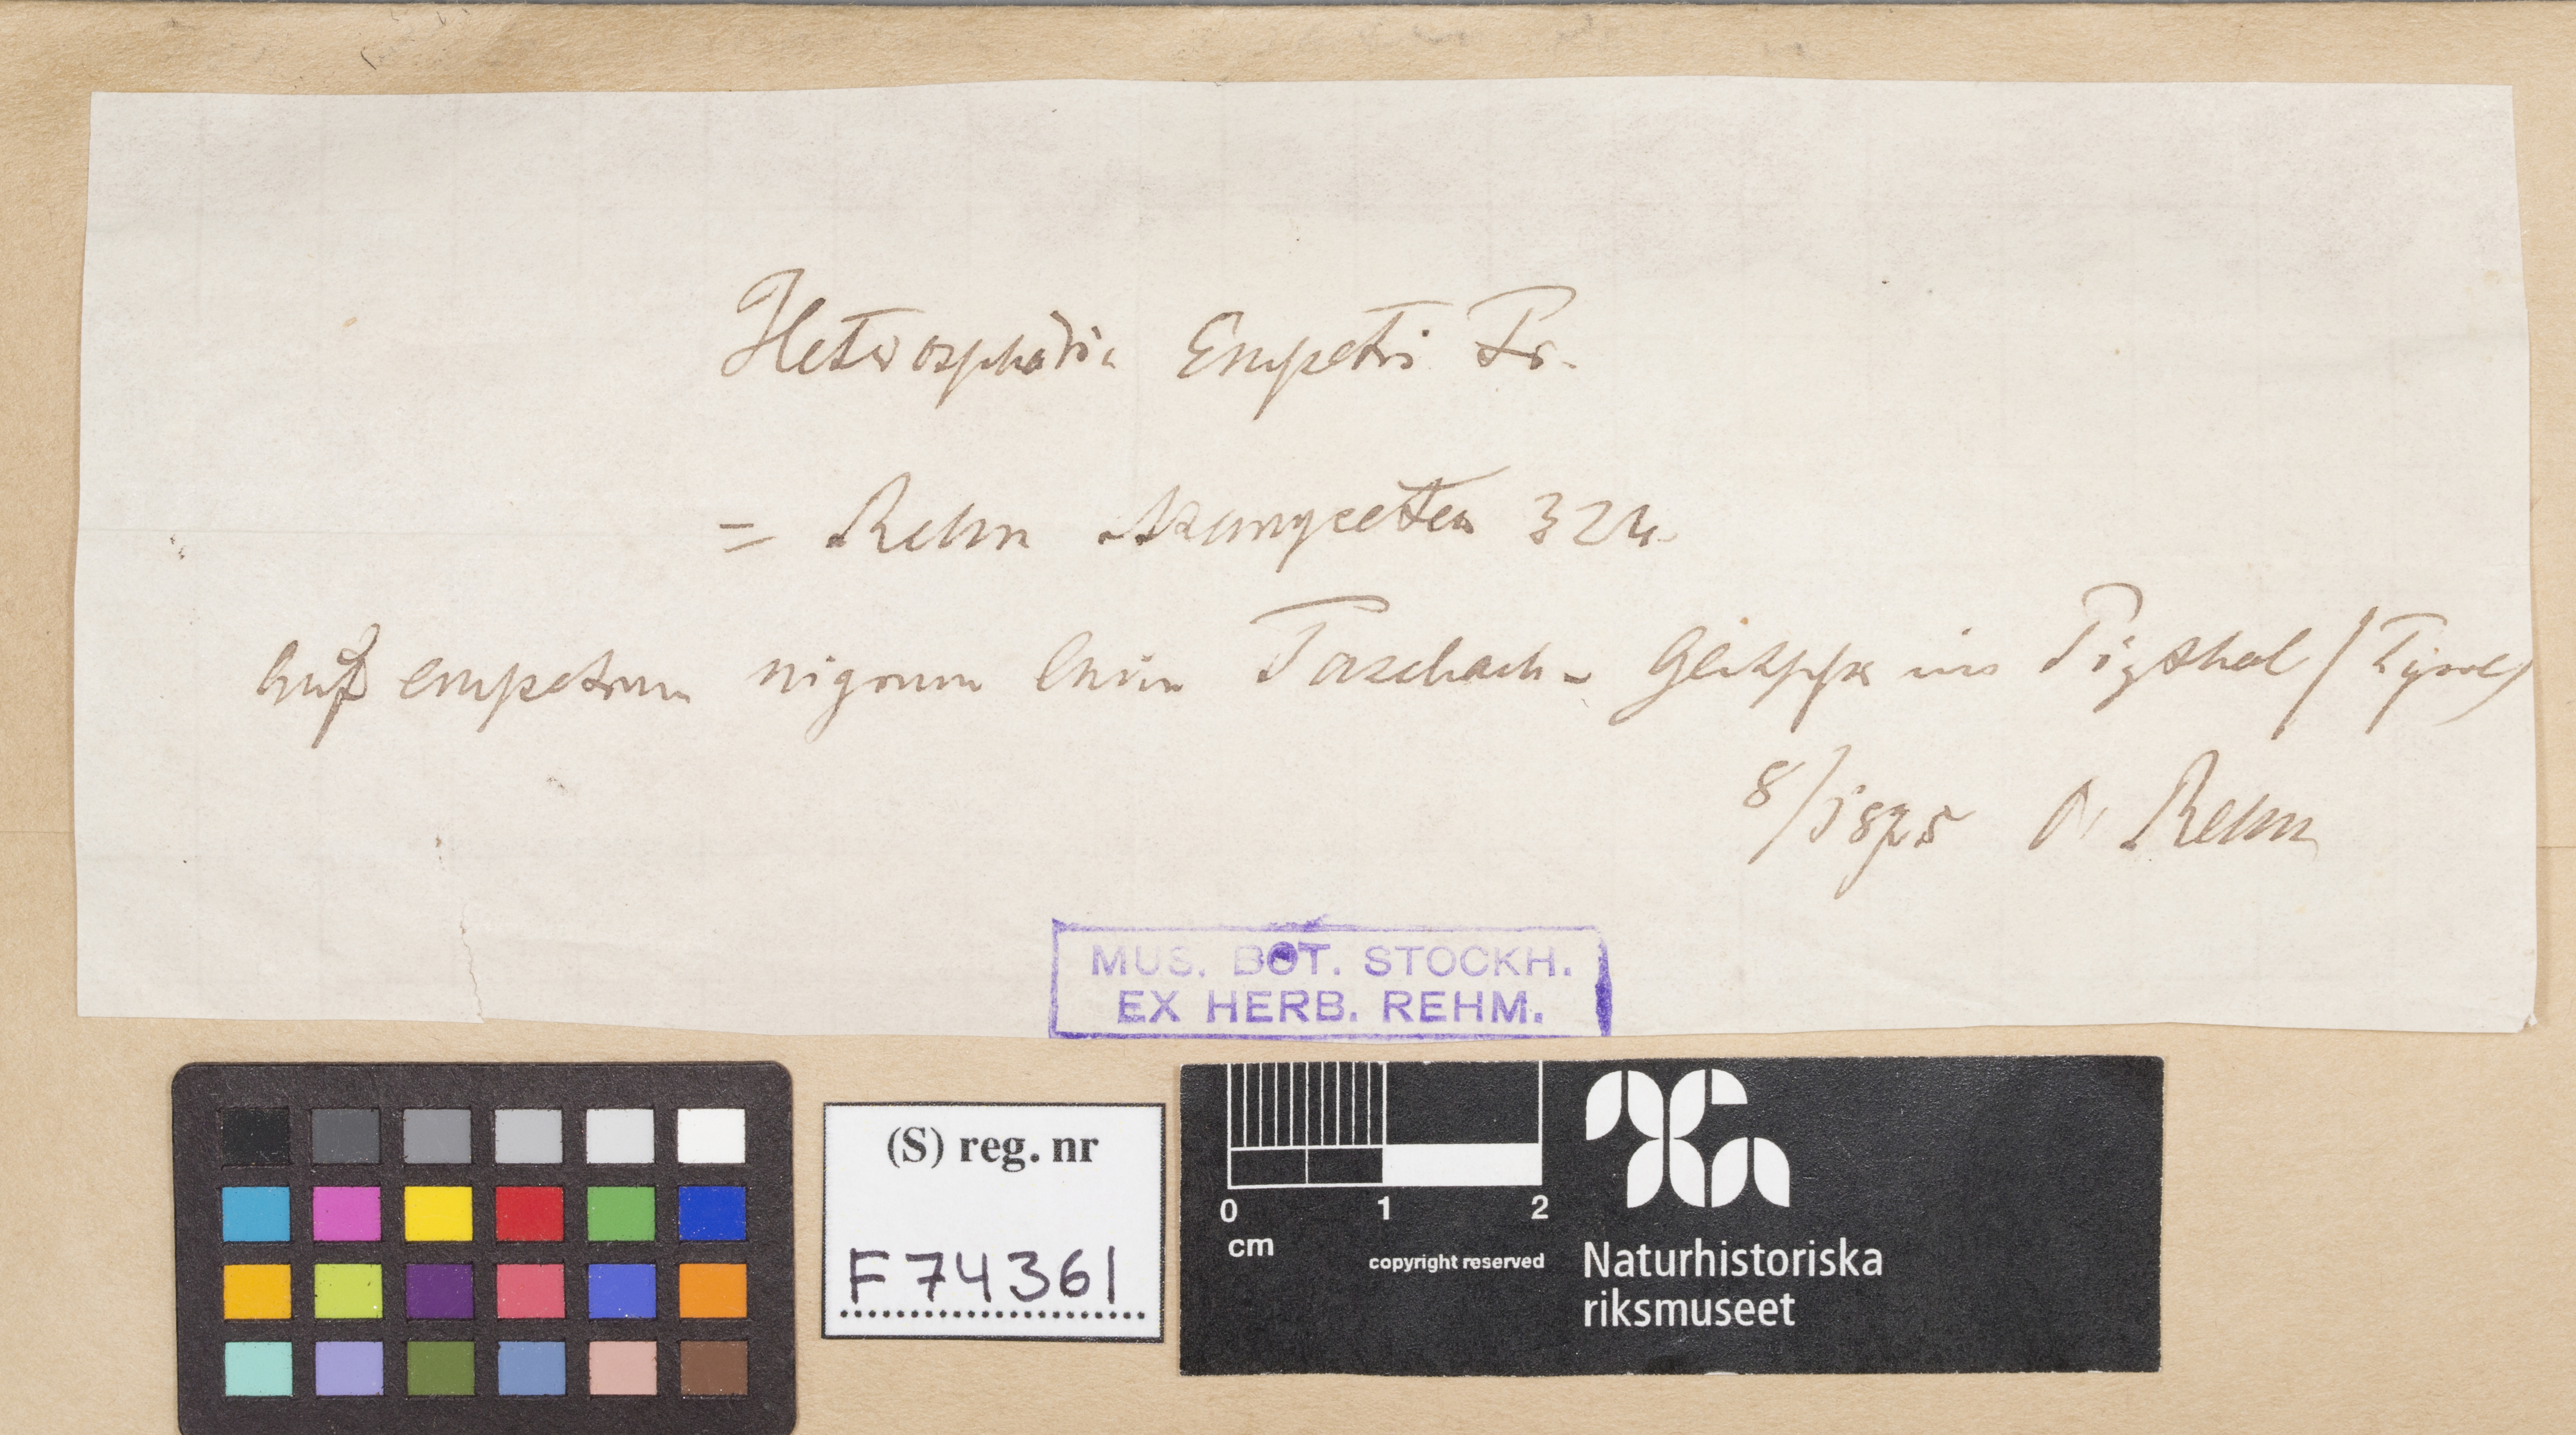 Heterosphäria Empetri Fr.
= Rehm Ascomyceten 324.
auf empetrum nigrum beim Taschach- Gletscher im Pizthal (Tyrol)
8/1875 Dr Rehm
MUS. BOT. STOCKH.
EX HERB. REHM.
(S) reg. nr
F74361
0 1 2
cm
copyright reserved
Naturhistoriska
riksmuseet